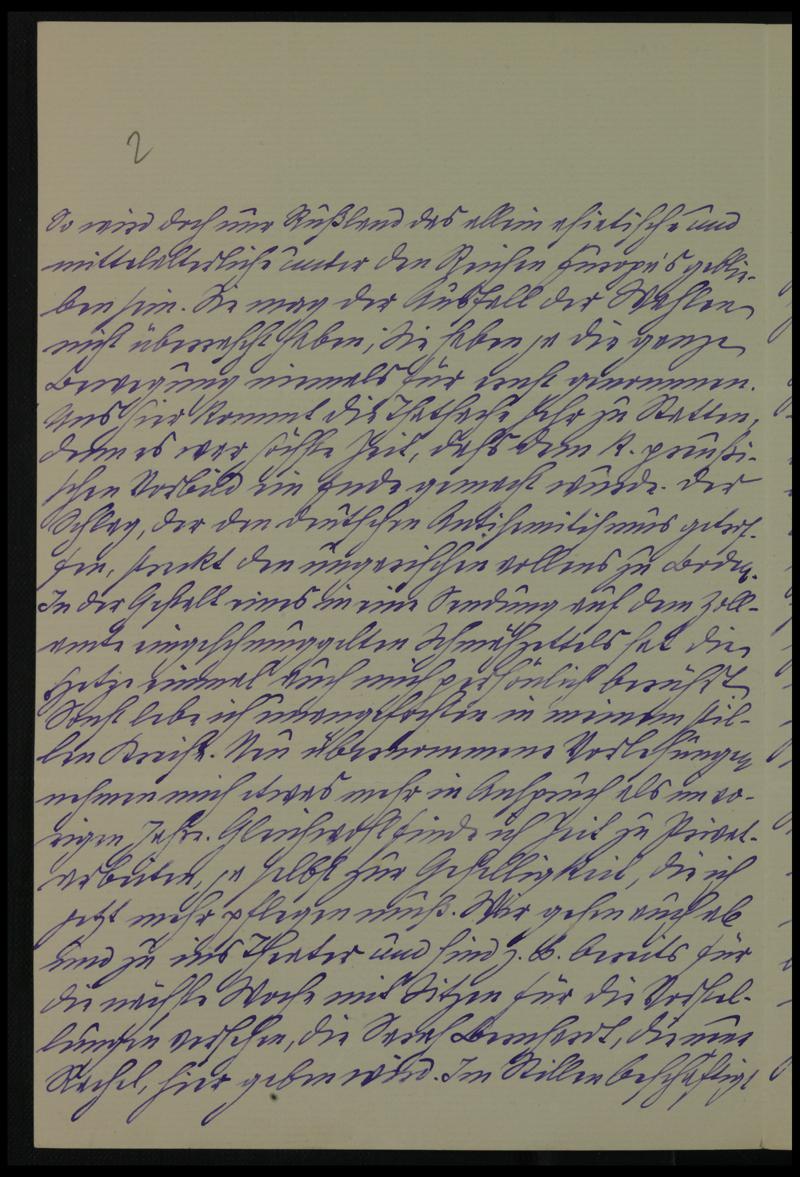 2
So wird doch nur Rußland das allein asiatische und
mittelalterliche unter den Reichen Europa's geblie-
ben sein. Sie mag der Ausfall der Wahlen
nicht überrascht haben; Sie haben ja die ganze
Bewegung niemals für ernst genommen.
Uns hier kommt die Thatsache sehr zu Statten,
denn es war höchste Zeit, daß dem k. preußi-
schen Vorbild ein Ende gemacht wurde. Der
Schlag, der den deutschen Antisemitismus getrof-
fen, streckt den ungarischen vollends zu Boden.
In der Gestalt eines in eine Sendung auf dem Zoll-
amte eingeschmuggelten Schmähzettels hat die
Hetze einmal auch mich persönlich berührt.
Sonst lebe ich unangefochten in meinem stil-
len Kreise. Neu übernommene Vorlesungen
nehmen mich etwas mehr in Anspruch als im vo-
rigen Jahre. Gleichwohl finde ich Zeit zu Privat-
arbeiten, ja selbst zur Geselligkeit, die ich
jetzt mehr pflegen muß. Wir gehen auch ab
und zu ins Theater und sind z. B. bereits für
die nächste Woche mit Sitzen für die Vorstel-
lungen versehen, die Sarah Bernhardt, die neue
Rachel, hier geben wird. Im Stillen beschäftigt